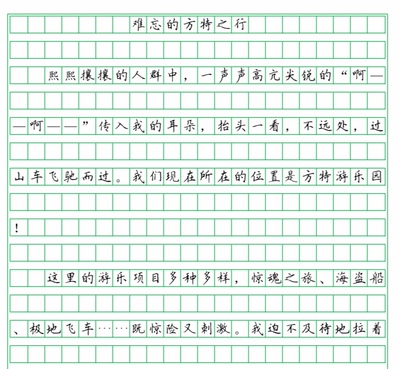 难忘的方特之行
熙熙攘攘的人群中，一声声高亢尖锐的“啊—
—啊——”传入我的耳朵，抬头一看，不远处，过
山车飞驰而过。我们现在所在的位置是方特游乐园
！
这里的游乐项目多种多样，惊魂之旅、海盗船
、极地飞车……既惊险又刺激。我迫不及待地拉着